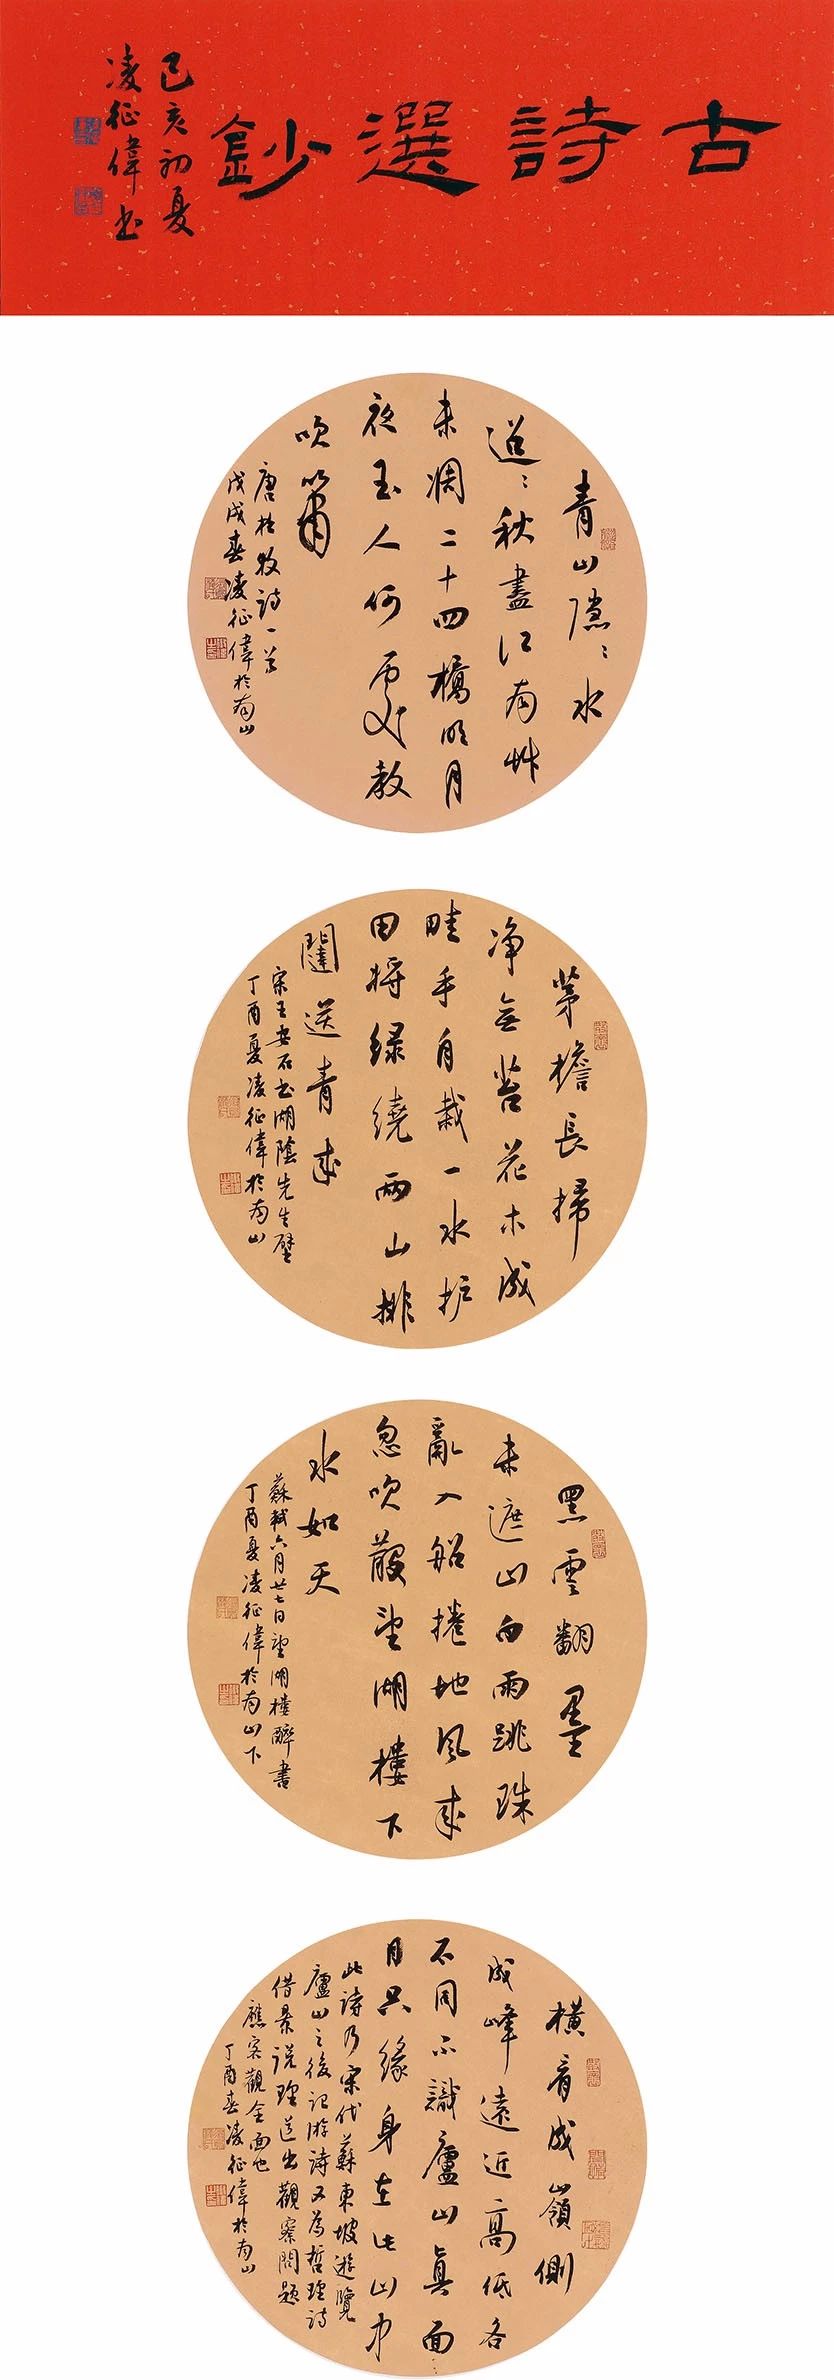 古詩選鈔
己亥初夏
凌征偉书
青山隱〻水
迢〻秋盡江南艸
未凋二十四橋明月
夜玉人何處教
吹簫
唐杜牧诗一首
戊戌春凌征偉於南山
茅檐長掃
净無苔花木成
畦手自栽一水护
田将緑繞兩山排
闥送青来
宋王安石书湖陰先生壁
丁酉夏凌征偉於南山
黑雲翻墨
未遮山白雨跳珠
亂入船捲地风来
忽吹散望湖樓下
水如天
蘇軾六月廿七日望湖樓醉書
丁酉夏凌征偉於南山下
橫看成嶺側
成峰遠近高低各
不同不識廬山真面
目只緣身在此山中
此詩乃宋代蘇東坡遊覽
廬山之後记游詩又為哲理詩
借景说理道出觀察問题
應客觀全面也
丁酉春凌征偉於南山